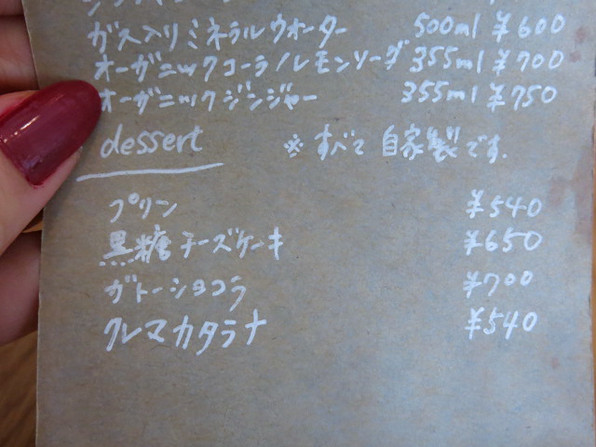 ガス入りミネラルウォーター 500ml ¥600
オーガニックコーラ/レモンソーダ 355ml ¥700
オーガニックジンジャー 355ml ¥750
dessert ※すべて自家製です.
プリン ¥540
黒糖チーズケーキ ¥650
ガトーショコラ ¥700
クレマカタラナ ¥540